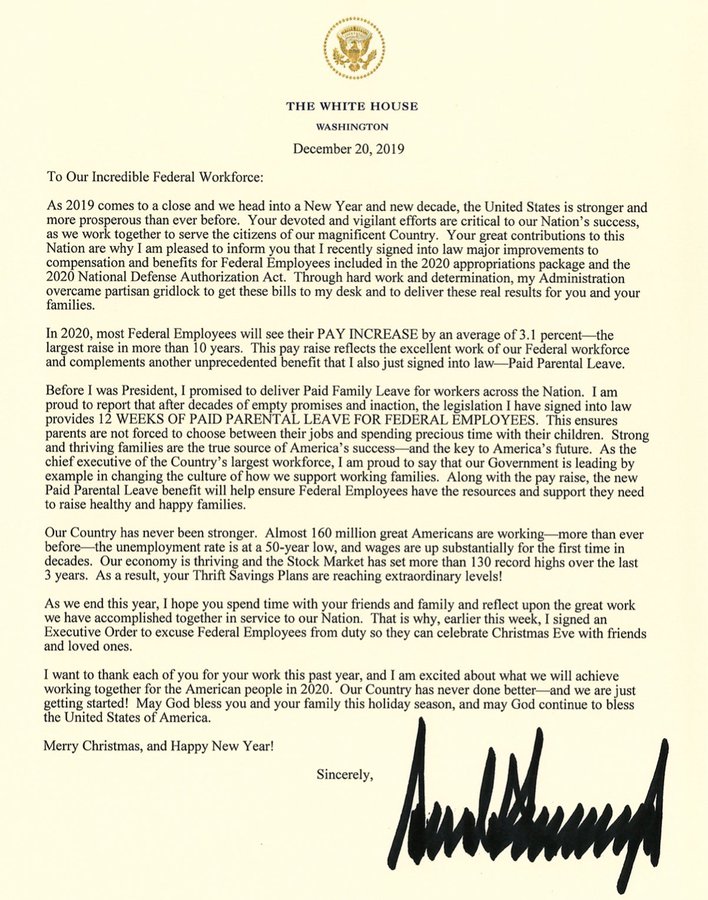 THE WHITE HOUSE
WASHINGTON
December 20, 2019
To Our Incredible Federal Workforce:
As 2019 comes to a close and we head into a New Year and new decade, the United States is stronger and
more prosperous than ever before. Your devoted and vigilant efforts are critical to our Nation's success,
as we work together to serve the citizens of our magnificent Country. Your great contributions to this
Nation are why I am pleased to inform you that I recently signed into law major improvements to
compensation and benefits for Federal Employees included in the 2020 appropriations package and the
2020 National Defense Authorization Act. Through hard work and determination, my Administration
overcame partisan gridlock to get these bills to my desk and to deliver these real results for you and your
families.
In 2020, most Federal Employees will see their PAY INCREASE by an average of 3.1 percent—the
largest raise in more than 10 years. This pay raise reflects the excellent work of our Federal workforce
and complements another unprecedented benefit that I also just signed into law—Paid Parental Leave.
Before I was President, I promised to deliver Paid Family Leave for workers across the Nation. I am
proud to report that after decades of empty promises and inaction, the legislation I have signed into law
provides 12 WEEKS OF PAID PARENTAL LEAVE FOR FEDERAL EMPLOYEES. This ensures
parents are not forced to choose between their jobs and spending precious time with their children. Strong
and thriving families are the true source of America's success—and the key to America's future. As the
chief executive of the Country's largest workforce, I am proud to say that our Government is leading by
example in changing the culture of how we support working families. Along with the pay raise, the new
Paid Parental Leave benefit will help ensure Federal Employees have the resources and support they need
to raise healthy and happy families.
Our Country has never been stronger. Almost 160 million great Americans are working—more than ever
before—the unemployment rate is at a 50-year low, and wages are up substantially for the first time in
decades. Our economy is thriving and the Stock Market has set more than 130 record highs over the last
3 years. As a result, your Thrift Savings Plans are reaching extraordinary levels!
As we end this year, I hope you spend time with your friends and family and reflect upon the great work
we have accomplished together in service to our Nation. That is why, earlier this week, I signed an
Executive Order to excuse Federal Employees from duty so they can celebrate Christmas Eve with friends
and loved ones.
I want to thank each of you for your work this past year, and I am excited about what we will achieve
working together for the American people in 2020. Our Country has never done better—and we are just
getting started! May God bless you and your family this holiday season, and may God continue to bless
the United States of America.
Merry Christmas, and Happy New Year!
Sincerely,